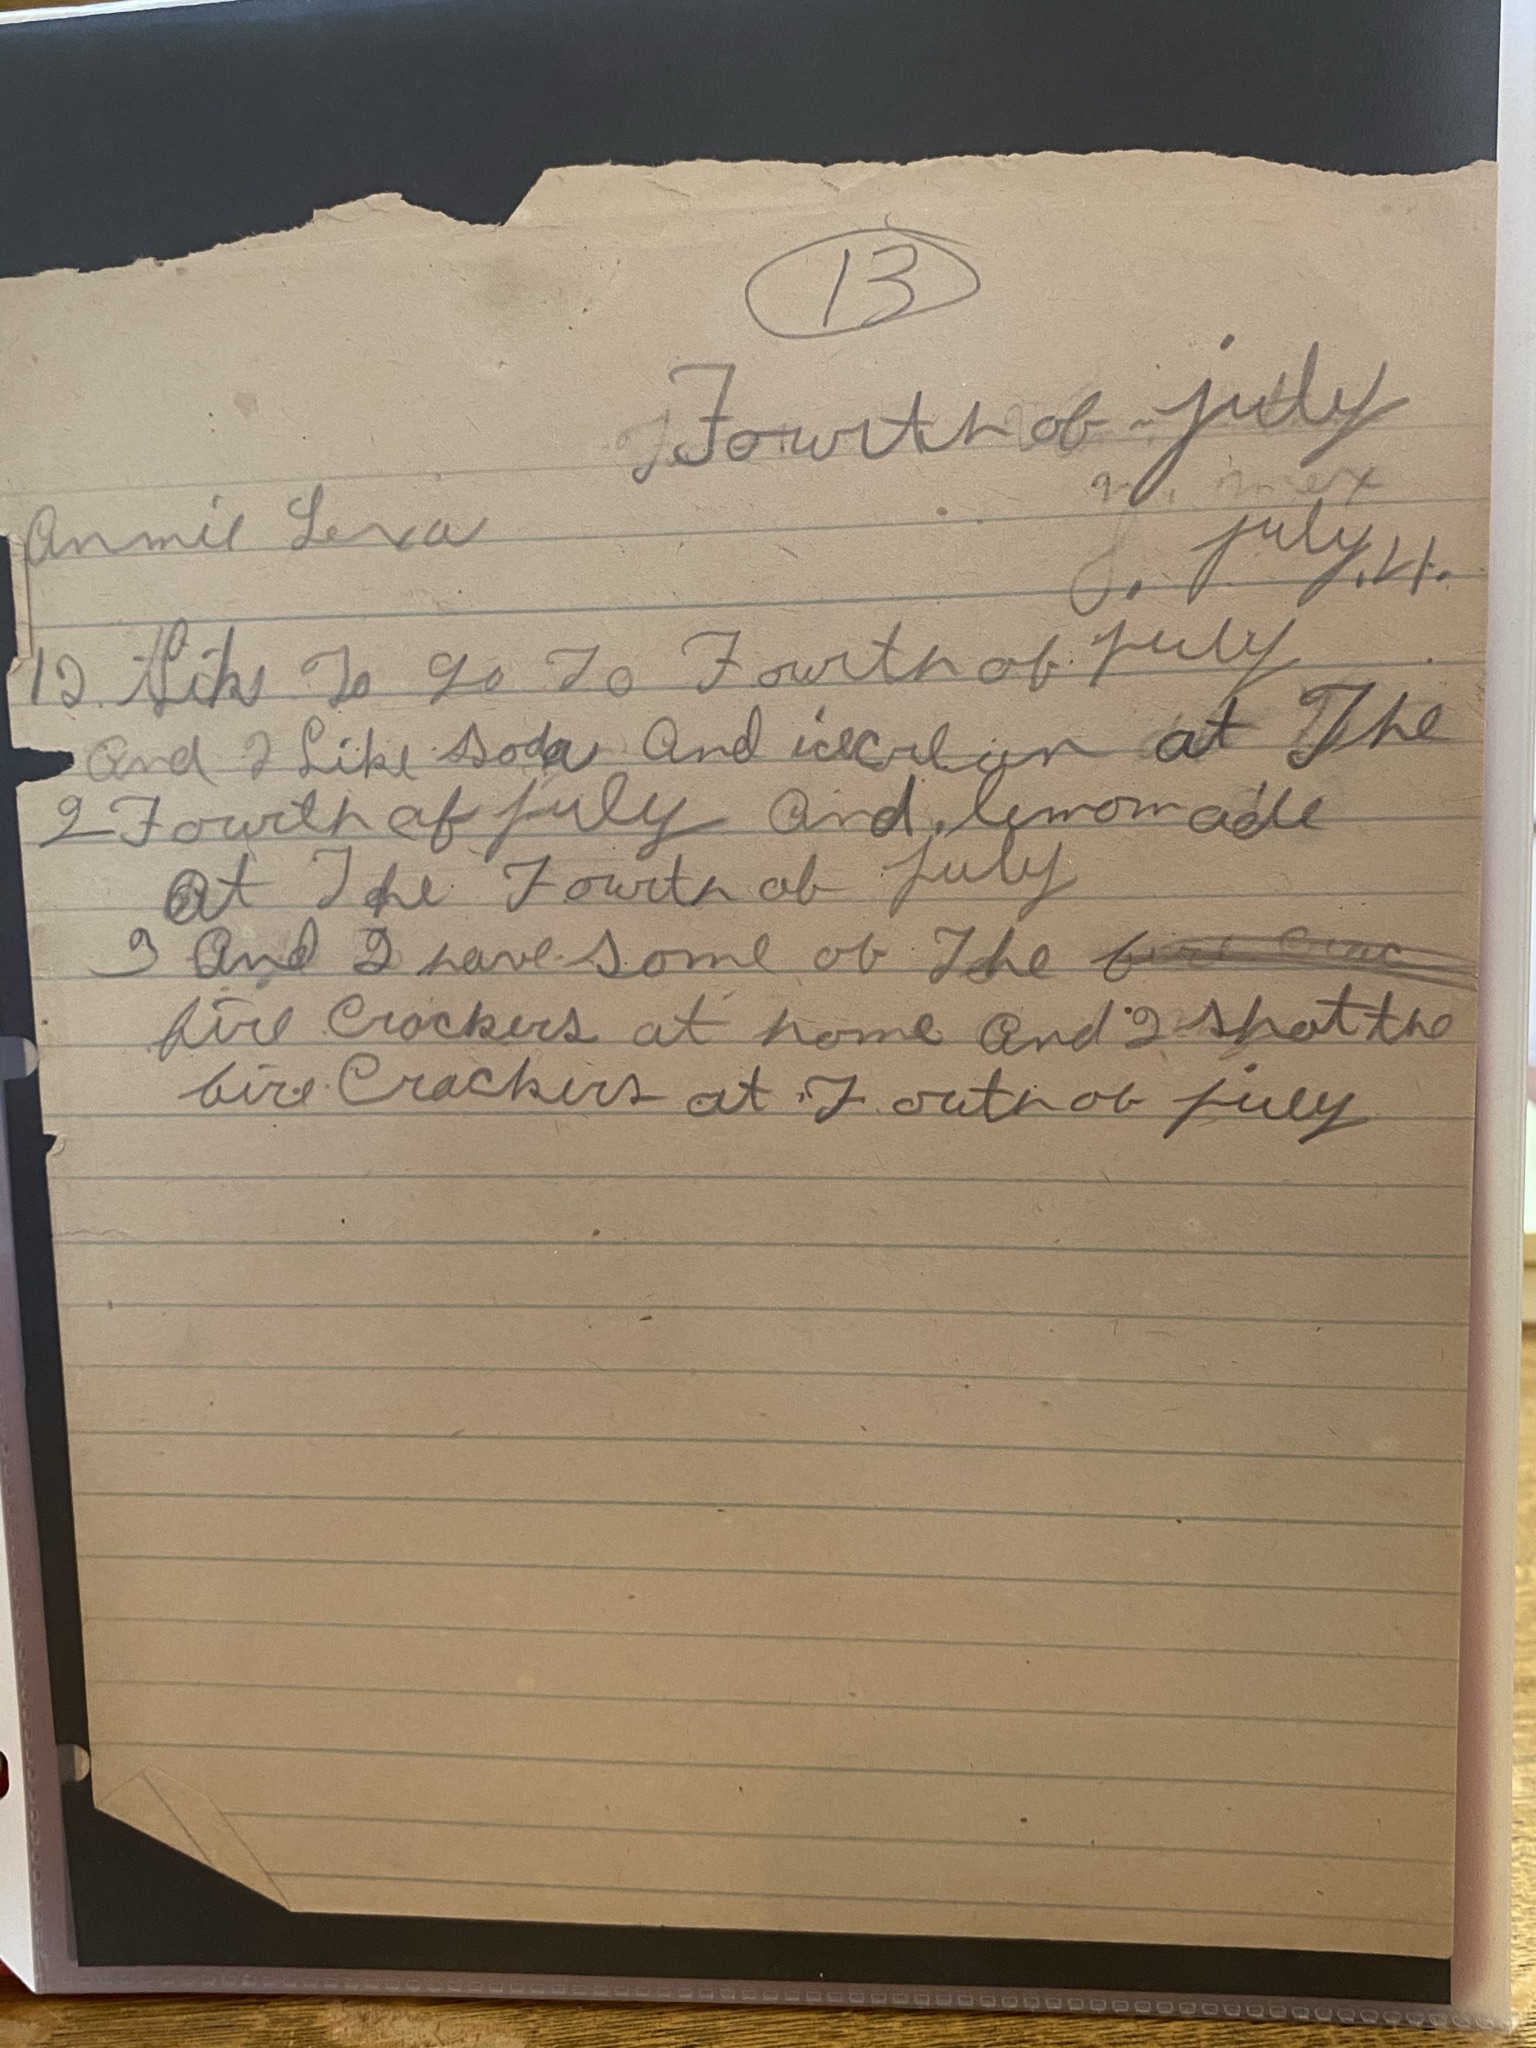 13
Fourth of july
Annie Lexa
july, 4.
1 I Like To go To Fourth of july
And I Like soda And icecream at The
2 Fourth of july And lemonade
At The Fourth of july
3 And I have some of The fire Crac
fire Crackers at home And I shot the
fire Crackers at Fourth of july